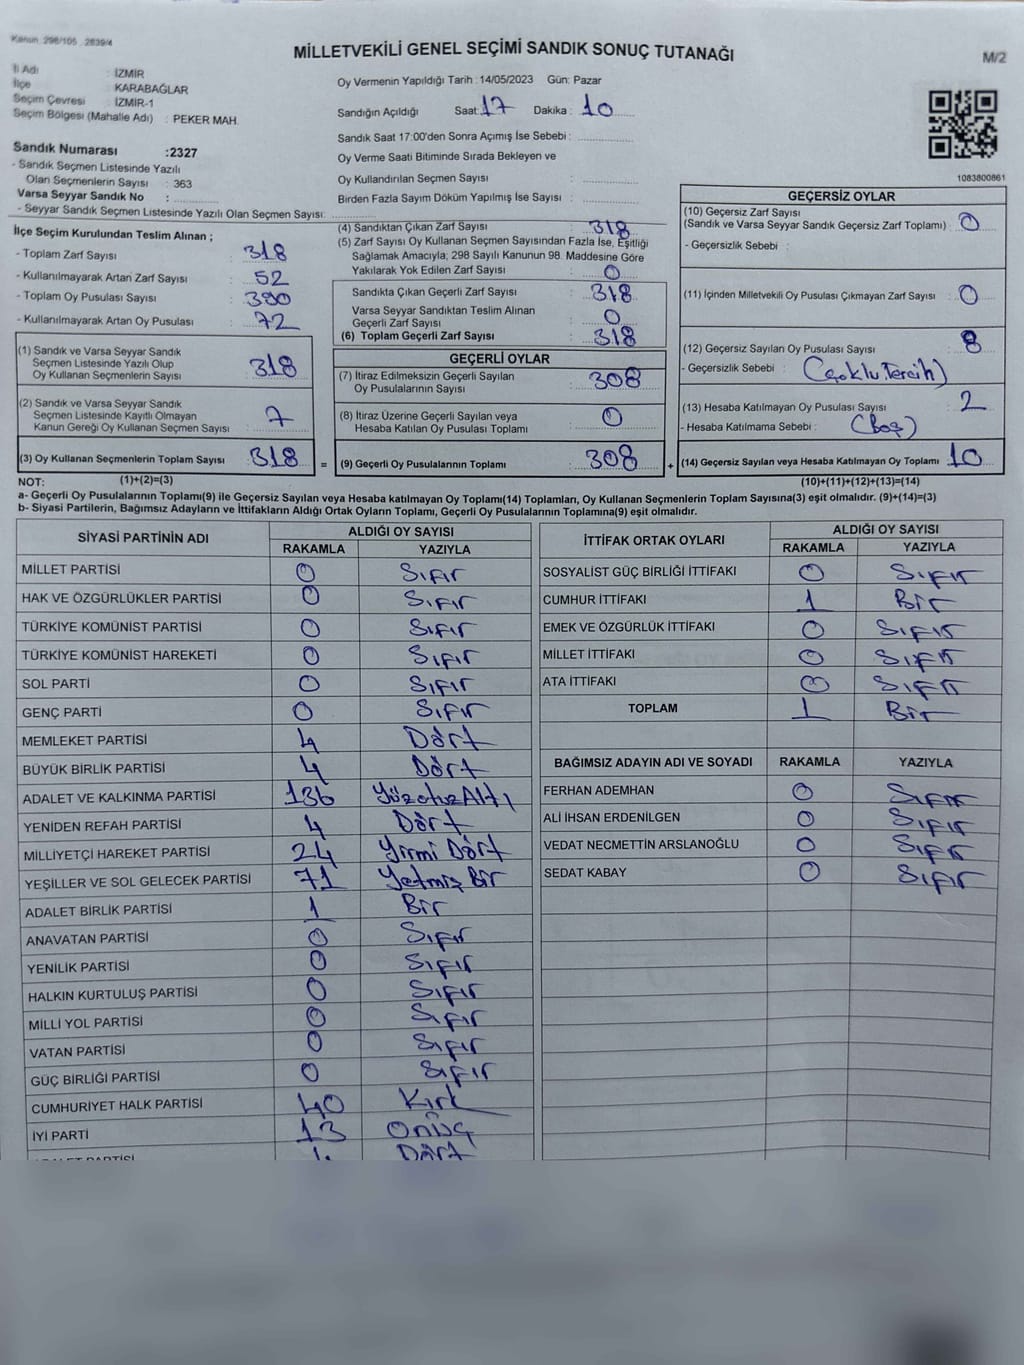 Kanun :298/105 , 2839/4
MİLLETVEKİLİ GENEL SEÇİMİ SANDIK SONUÇ TUTANAĞI
M/2
İl Adı : İZMİR
İlçe : KARABAĞLAR
Seçim Çevresi : İZMİR-1
Seçim Bölgesi (Mahalle Adı) : PEKER MAH.
Oy Vermenin Yapıldığı Tarih : 14/05/2023 Gün: Pazar
Sandığın Açıldığı Saat: 17 Dakika : 10
Sandık Saat 17:00'den Sonra Açımış İse Sebebi :
Oy Verme Saati Bitiminde Sırada Bekleyen ve
Oy Kullandırılan Seçmen Sayısı :
Birden Fazla Sayım Döküm Yapılmış İse Sayısı :
1083800861
Sandık Numarası :2327
- Sandık Seçmen Listesinde Yazılı
Olan Seçmenlerin Sayısı : 363
Varsa Seyyar Sandık No :
- Seyyar Sandık Seçmen Listesinde Yazılı Olan Seçmen Sayısı:
İlçe Seçim Kurulundan Teslim Alınan ;
- Toplam Zarf Sayısı : 318
- Kullanılmayarak Artan Zarf Sayısı : 52
- Toplam Oy Pusulası Sayısı : 390
- Kullanılmayarak Artan Oy Pusulası : 72
(1) Sandık ve Varsa Seyyar Sandık
Seçmen Listesinde Yazılı Olup
Oy Kullanan Seçmenlerin Sayısı : 318
(2) Sandık ve Varsa Seyyar Sandık
Seçmen Listesinde Kayıtlı Olmayan
Kanun Gereği Oy Kullanan Seçmen Sayısı : 7
(3) Oy Kullanan Seçmenlerin Toplam Sayısı : 318 =
(1)+(2)=(3)
(4) Sandıktan Çıkan Zarf Sayısı : 318
(5) Zarf Sayısı Oy Kullanan Seçmen Sayısından Fazla İse, Eşitliği
Sağlamak Amacıyla; 298 Sayılı Kanunun 98. Maddesine Göre
Yakılarak Yok Edilen Zarf Sayısı : 0
Sandıkta Çıkan Geçerli Zarf Sayısı : 318
Varsa Seyyar Sandıktan Teslim Alınan
Geçerli Zarf Sayısı : 0
(6) Toplam Geçerli Zarf Sayısı : 318
GEÇERLİ OYLAR
(7) İtiraz Edilmeksizin Geçerli Sayılan
Oy Pusulalarının Sayısı : 308
(8) İtiraz Üzerine Geçerli Sayılan veya
Hesaba Katılan Oy Pusulası Toplamı : 0
(9) Geçerli Oy Pusulalarının Toplamı : 308 +
GEÇERSİZ OYLAR
(10) Geçersiz Zarf Sayısı
(Sandık ve Varsa Seyyar Sandık Geçersiz Zarf Toplamı) : 0
- Geçersizlik Sebebi :
(11) İçinden Milletvekili Oy Pusulası Çıkmayan Zarf Sayısı : 0
(12) Geçersiz Sayılan Oy Pusulası Sayısı : 8
- Geçersizlik Sebebi : (Çoklu Tercih)
(13) Hesaba Katılmayan Oy Pusulası Sayısı : 2
- Hesaba Katılmama Sebebi : (Boş)
(14) Geçersiz Sayılan veya Hesaba Katılmayan Oy Toplamı 10
(10)+(11)+(12)+(13)=(14)
NOT:
a- Geçerli Oy Pusulalarının Toplamı(9) ile Geçersiz Sayılan veya Hesaba katılmayan Oy Toplamı(14) Toplamları, Oy Kullanan Seçmenlerin Toplam Sayısına(3) eşit olmalıdır. (9)+(14)=(3)
b- Siyasi Partilerin, Bağımsız Adayların ve İttifakların Aldığı Ortak Oyların Toplamı, Geçerli Oy Pusulalarının Toplamına(9) eşit olmalıdır.
SİYASİ PARTİNİN ADI ALDIĞI OY SAYISI
RAKAMLA YAZIYLA
MİLLET PARTİSİ 0 Sıfır
HAK VE ÖZGÜRLÜKLER PARTİSİ 0 Sıfır
TÜRKİYE KOMÜNİST PARTİSİ 0 Sıfır
TÜRKİYE KOMÜNİST HAREKETİ 0 Sıfır
SOL PARTİ 0 Sıfır
GENÇ PARTİ 0 Sıfır
MEMLEKET PARTİSİ 4 Dört
BÜYÜK BİRLİK PARTİSİ 4 Dört
ADALET VE KALKINMA PARTİSİ 136 YüzotuzAltı
YENİDEN REFAH PARTİSİ 4 Dört
MİLLİYETÇİ HAREKET PARTİSİ 24 Yirmi Dört
YEŞİLLER VE SOL GELECEK PARTİSİ 71 Yetmiş Bir
ADALET BİRLİK PARTİSİ 1 Bir
ANAVATAN PARTİSİ 0 Sıfır
YENİLİK PARTİSİ 0 Sıfır
HALKIN KURTULUŞ PARTİSİ 0 Sıfır
MİLLİ YOL PARTİSİ 0 Sıfır
VATAN PARTİSİ 0 Sıfır
GÜÇ BİRLİĞİ PARTİSİ 0 Sıfır
CUMHURİYET HALK PARTİSİ 40 Kırk
İYİ PARTİ 13 Onüç
PARTİSİ Dört
İTTİFAK ORTAK OYLARI ALDIĞI OY SAYISI
RAKAMLA YAZIYLA
SOSYALİST GÜÇ BİRLİĞİ İTTİFAKI 0 Sıfır
CUMHUR İTTİFAKI 1 Bir
EMEK VE ÖZGÜRLÜK İTTİFAKI 0 Sıfır
MİLLET İTTİFAKI 0 Sıfır
ATA İTTİFAKI 0 Sıfır
TOPLAM 1 Bir
BAĞIMSIZ ADAYIN ADI VE SOYADI RAKAMLA YAZIYLA
FERHAN ADEMHAN 0 Sıfır
ALİ İHSAN ERDENİLGEN 0 Sıfır
VEDAT NECMETTİN ARSLANOĞLU 0 Sıfır
SEDAT KABAY 0 Sıfır